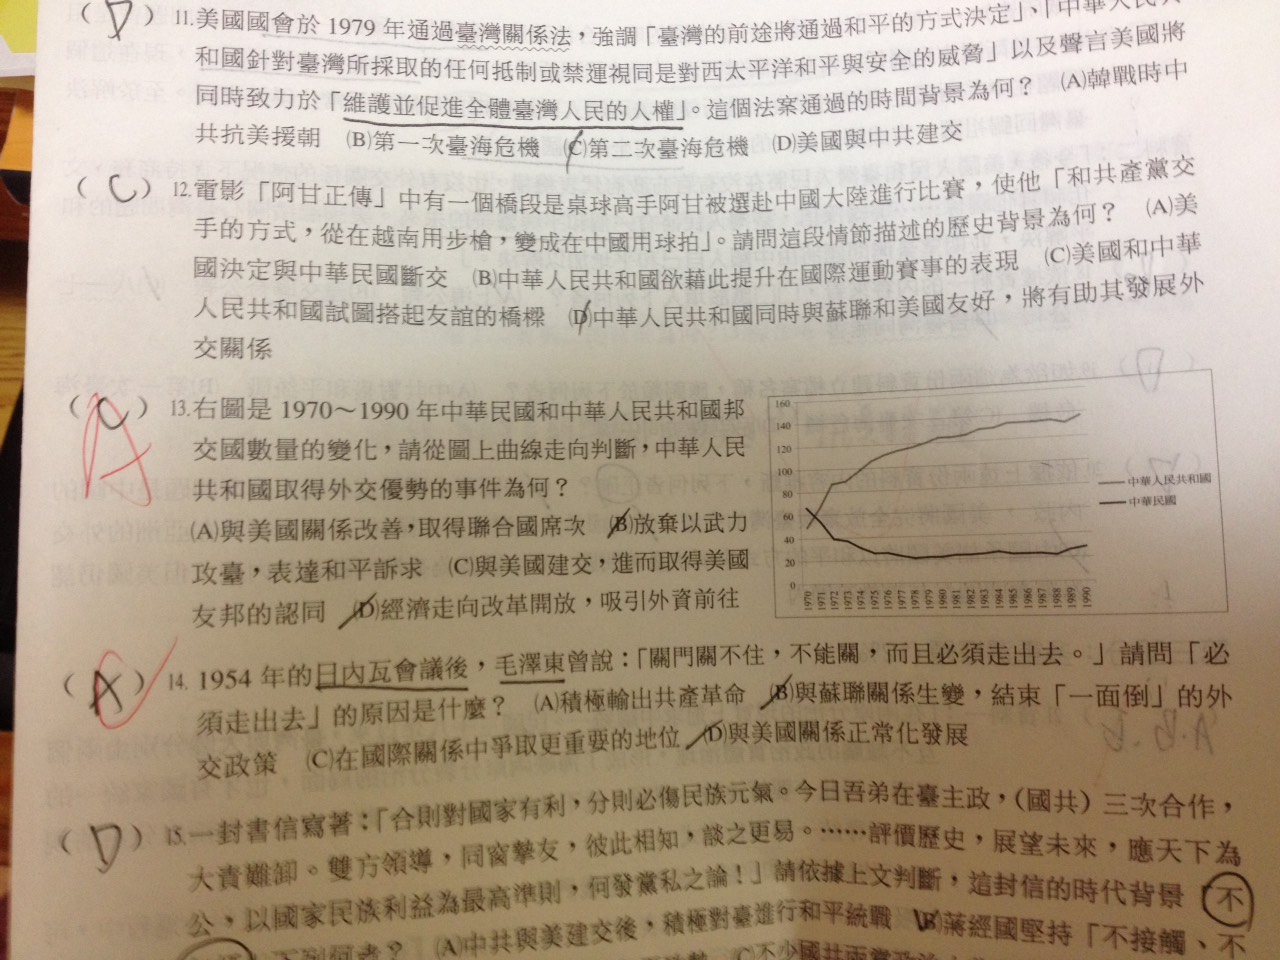 (D) 11.美國國會於 1979 年通過臺灣關係法，強調「臺灣的前途將通過和平的方式決定」、「中華人民共
和國針對臺灣所採取的任何抵制或禁運視同是對西太平洋和平與安全的威脅」以及聲言美國將
同時致力於「維護並促進全體臺灣人民的人權」。這個法案通過的時間背景為何？ (A)韓戰時中
共抗美援朝 (B)第一次臺海危機 (C)第二次臺海危機 (D)美國與中共建交
(C) 12.電影「阿甘正傳」中有一個橋段是桌球高手阿甘被選赴中國大陸進行比賽，使他「和共產黨交
手的方式，從在越南用步槍，變成在中國用球拍」。請問這段情節描述的歷史背景為何？ (A)美
國決定與中華民國斷交 (B)中華人民共和國欲藉此提升在國際運動賽事的表現 (C)美國和中華
人民共和國試圖搭起友誼的橋樑 (D)中華人民共和國同時與蘇聯和美國友好，將有助其發展外
交關係
(C) A 13.右圖是 1970～1990 年中華民國和中華人民共和國邦
交國數量的變化，請從圖上曲線走向判斷，中華人民
共和國取得外交優勢的事件為何？
(A)與美國關係改善，取得聯合國席次 (B)放棄以武力
攻臺，表達和平訴求 (C)與美國建交，進而取得美國
友邦的認同 (D)經濟走向改革開放，吸引外資前往
160
140
120
100
80
60
40
20
0
1970 1971 1972 1973 1974 1975 1976 1977 1978 1979 1980 1981 1982 1983 1984 1985 1986 1987 1988 1989 1990
中華人民共和國
中華民國
14. 1954 年的日內瓦會議後，毛澤東曾說：「關門關不住，不能關，而且必須走出去。」請問「必
須走出去」的原因是什麼？ (A)積極輸出共產革命 (B)與蘇聯關係生變，結束「一面倒」的外
交政策 (C)在國際關係中爭取更重要的地位 (D)與美國關係正常化發展
(D) 15.一封書信寫著：「合則對國家有利，分則必傷民族元氣。今日吾弟在臺主政，（國共）三次合作，
大責難卸。雙方領導，同窗摯友，彼此相知，談之更易。……評價歷史，展望未來，應天下為
公，以國家民族利益為最高準則，何發黨私之論！」請依據上文判斷，這封信的時代背景「不
下列何者？ (A)中共與美建交後，積極對臺進行和平統戰 (B)蔣經國堅持「不接觸、不